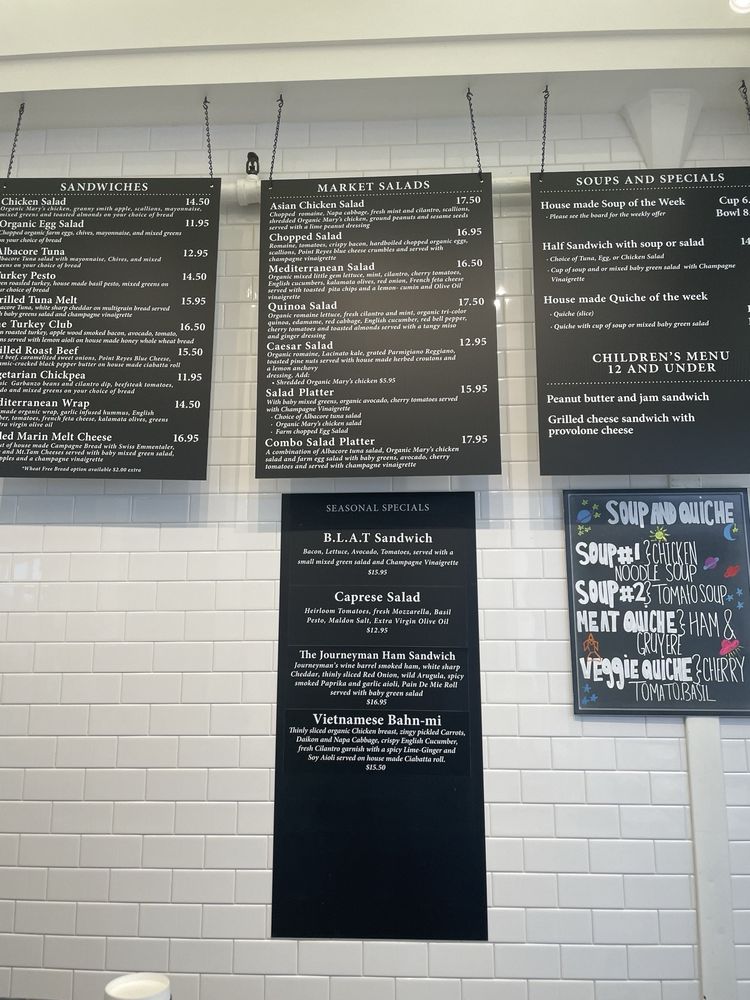 SANDWICHES
Chicken Salad 14.50
Organic Mary's chicken, granny smith apple, scallions, mayonnaise,
mixed greens and toasted almonds on your choice of bread
Organic Egg Salad 11.95
Chopped organic farm eggs, chives, mayonnaise, and mixed greens
on your choice of bread
Albacore Tuna 12.95
Albacore Tuna salad with mayonnaise, Chives, and mixed
greens on your choice of bread
Turkey Pesto 14.50
roasted turkey, house made basil pesto, mixed greens on
choice of bread
rilled Tuna Melt 15.95
bacore Tuna, white sharp cheddar on multigrain bread served
with baby greens salad and Champagne Vinaigrette
e Turkey Club 16.50
roasted turkey, apple wood smoked bacon, avocado, tomato,
ns served with lemon aioli on house made honey whole wheat bread
illed Roast Beef 15.50
beef, caramelized sweet onions, Point Reyes Blue Cheese,
mic-cracked black pepper butter on house made ciabatta roll
getarian Chickpea 11.95
nic Garbanzo beans and cilantro dip, beefsteak tomatoes,
do and mixed greens on your choice of bread
diterranean Wrap 14.50
made organic wrap, garlic infused hummus, English
ber, tomatoes, french feta cheese, kalamata olives, greens
tra virgin olive oil
led Marin Melt Cheese 16.95
ut of house made Campagne Bread with Swiss Emmentaler,
and Mt.Tam Cheeses served with baby mixed green salad,
pples and a champagne vinaigrette
*Wheat Free Bread option available $2.00 extra
MARKET SALADS
Asian Chicken Salad 17.50
Chopped romaine, Napa cabbage, fresh mint and cilantro, scallions,
shredded Organic Mary's chicken, ground peanuts and sesame seeds
served with a lime peanut dressing
Chopped Salad 16.95
Romaine, tomatoes, crispy bacon, hardboiled chopped organic eggs,
scallions, Point Reyes blue cheese crumbles and served with
champagne vinaigrette
Mediterranean Salad 16.50
Organic mixed little gem lettuce, mint, cilantro, cherry tomatoes,
English cucumbers, kalamata olives, red onion, French feta cheese
served with toasted pita chips and a lemon- cumin and Olive Oil
vinaigrette
Quinoa Salad 17.50
Organic romaine lettuce, fresh cilantro and mint, organic tri-color
quinoa, edamame, red cabbage, English cucumber, red bell pepper,
cherry tomatoes and toasted almonds served with a tangy miso
and ginger dressing
Caesar Salad 12.95
Organic romaine, Lacinato kale, grated Parmigiano Reggiano,
toasted pine nuts served with house made herbed croutons and
a lemon anchovy
dressing, Add:
• Shredded Organic Mary's chicken $5.95
Salad Platter 15.95
With baby mixed greens, organic avocado, cherry tomatoes served
with Champagne Vinaigrette
- Choice of Albacore tuna salad
- Organic Mary's chicken salad
- Farm chopped Egg Salad
Combo Salad Platter 17.95
A combination of Albacore tuna salad, Organic Mary's chicken
salad and farm egg salad with baby greens, avocado, cherry
tomatoes and served with champagne vinaigrette
SOUPS AND SPECIALS
House made Soup of the Week Cup 6.
- Please see the board for the weekly offer Bowl 8
Half Sandwich with soup or salad 14
- Choice of Tuna, Egg, or Chicken Salad
- Cup of soup and or mixed baby green salad with Champagne
Vinaigrette
House made Quiche of the week
- Quiche (slice)
- Quiche with cup of soup or mixed baby green salad
CHILDREN'S MENU
12 AND UNDER
Peanut butter and jam sandwich
Grilled cheese sandwich with
provolone cheese
SEASONAL SPECIALS
B.L.A.T Sandwich
Bacon, Lettuce, Avocado, Tomatoes, served with a
small mixed green salad and Champagne Vinaigrette
$15.95
Caprese Salad
Heirloom Tomatoes, fresh Mozzarella, Basil
Pesto, Maldon Salt, Extra Virgin Olive Oil
$12.95
The Journeyman Ham Sandwich
Journeymen's wine barrel smoked ham, white sharp
Cheddar, thinly sliced Red Onion, wild Arugula, spicy
smoked Paprika and garlic aioli, Pain De Mie Roll
served with baby green salad
$16.95
Vietnamese Bahn-mi
Thinly sliced organic Chicken breast, zingy pickled Carrots,
Daikon and Napa Cabbage, crispy English Cucumber,
fresh Cilantro garnish with a spicy Lime-Ginger and
Soy Aioli served on house made Ciabatta roll.
$15.50
SOUP AND QUICHE
SOUP#1 } CHICKEN
NOODLE SOUP
SOUP#2 } TOMATO SOUP
MEAT QUICHE } HAM &
GRUYERE
VEGGIE QUICHE } CHERRY
TOMATO.BASIL